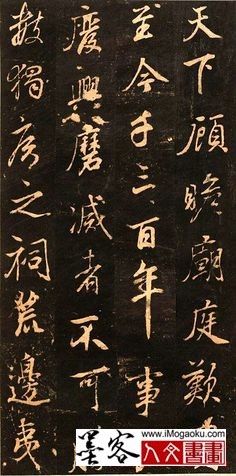 天下顧瞻廟庭歎
至今千三百年事
廢興磨滅者不可
數獨彦之祠荒邊夷
墨客
www.iMogaoku.com
人文書畫